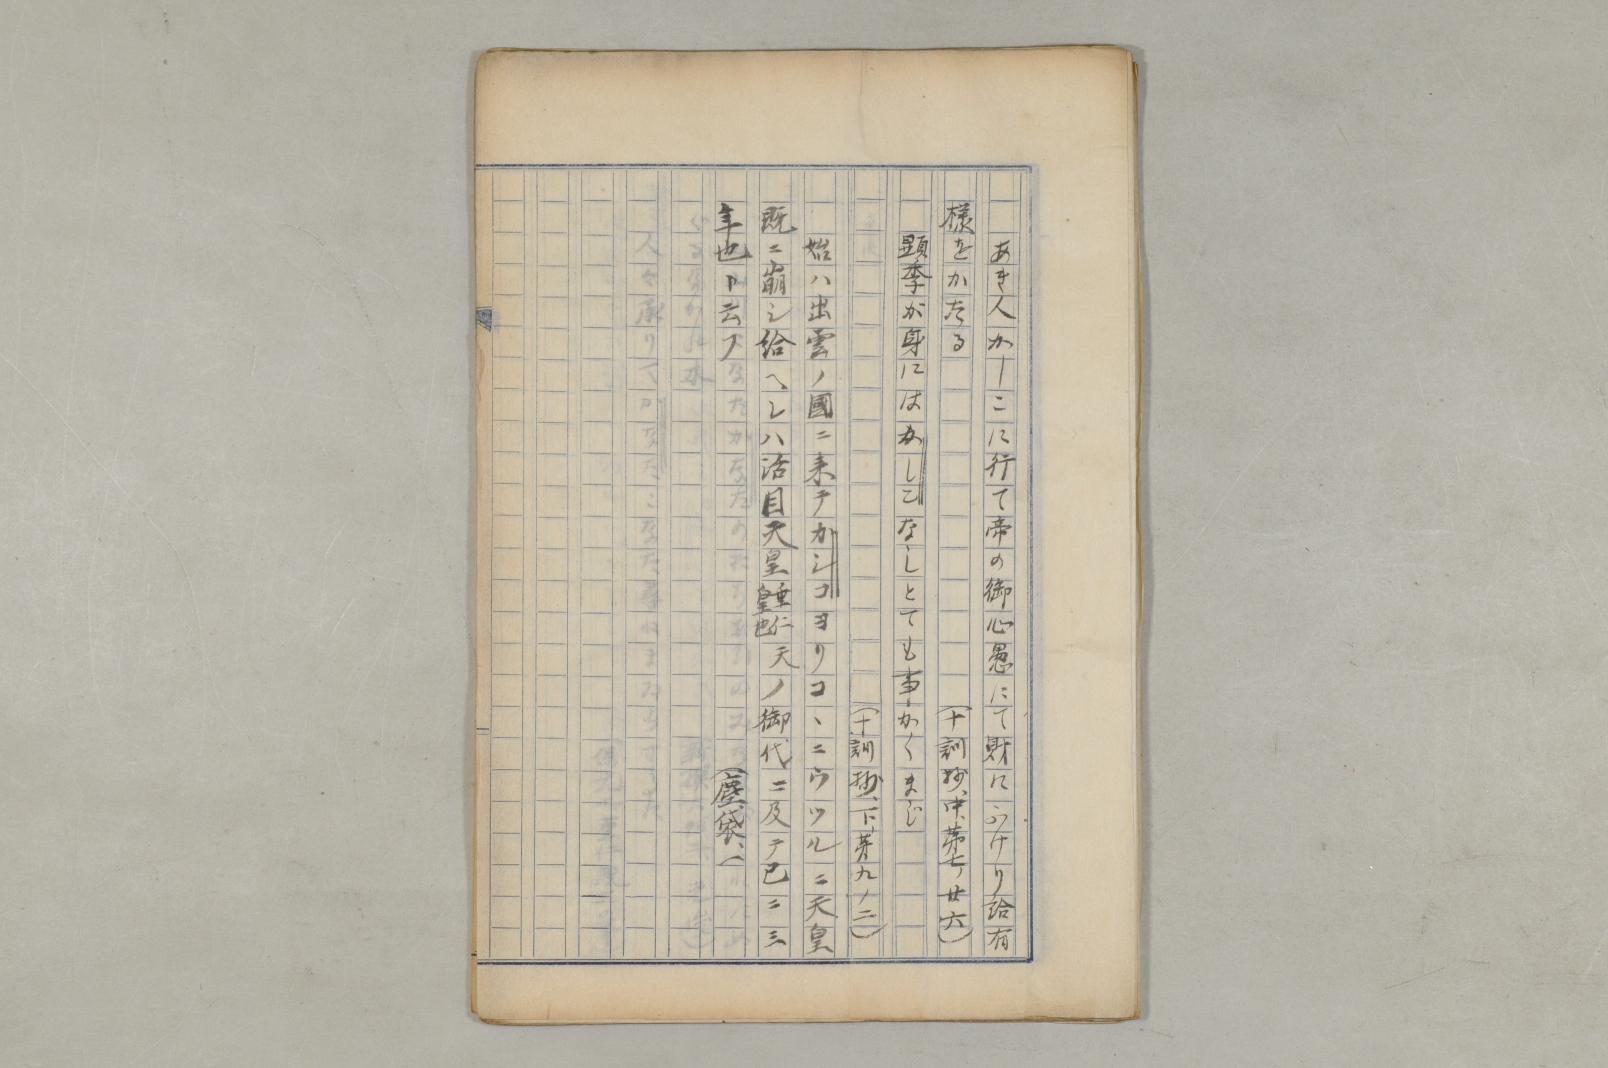 あき人かしこに行て帝の御心愚にて財にふけり給有
様をかたる　(十訓抄、中、第七ノ廿六)
顕季が身にはかしこなしとても事かくまじ
(十訓抄、下、第九ノ二)
始ハ出雲ノ國ニ来テカシコヨリコヽニウツルニ天皇
既ニ崩シ給ヘレハ活目天皇垂仁天皇也ノ御代ニ及テ已ニ三
年也ト云フ　(塵袋、一